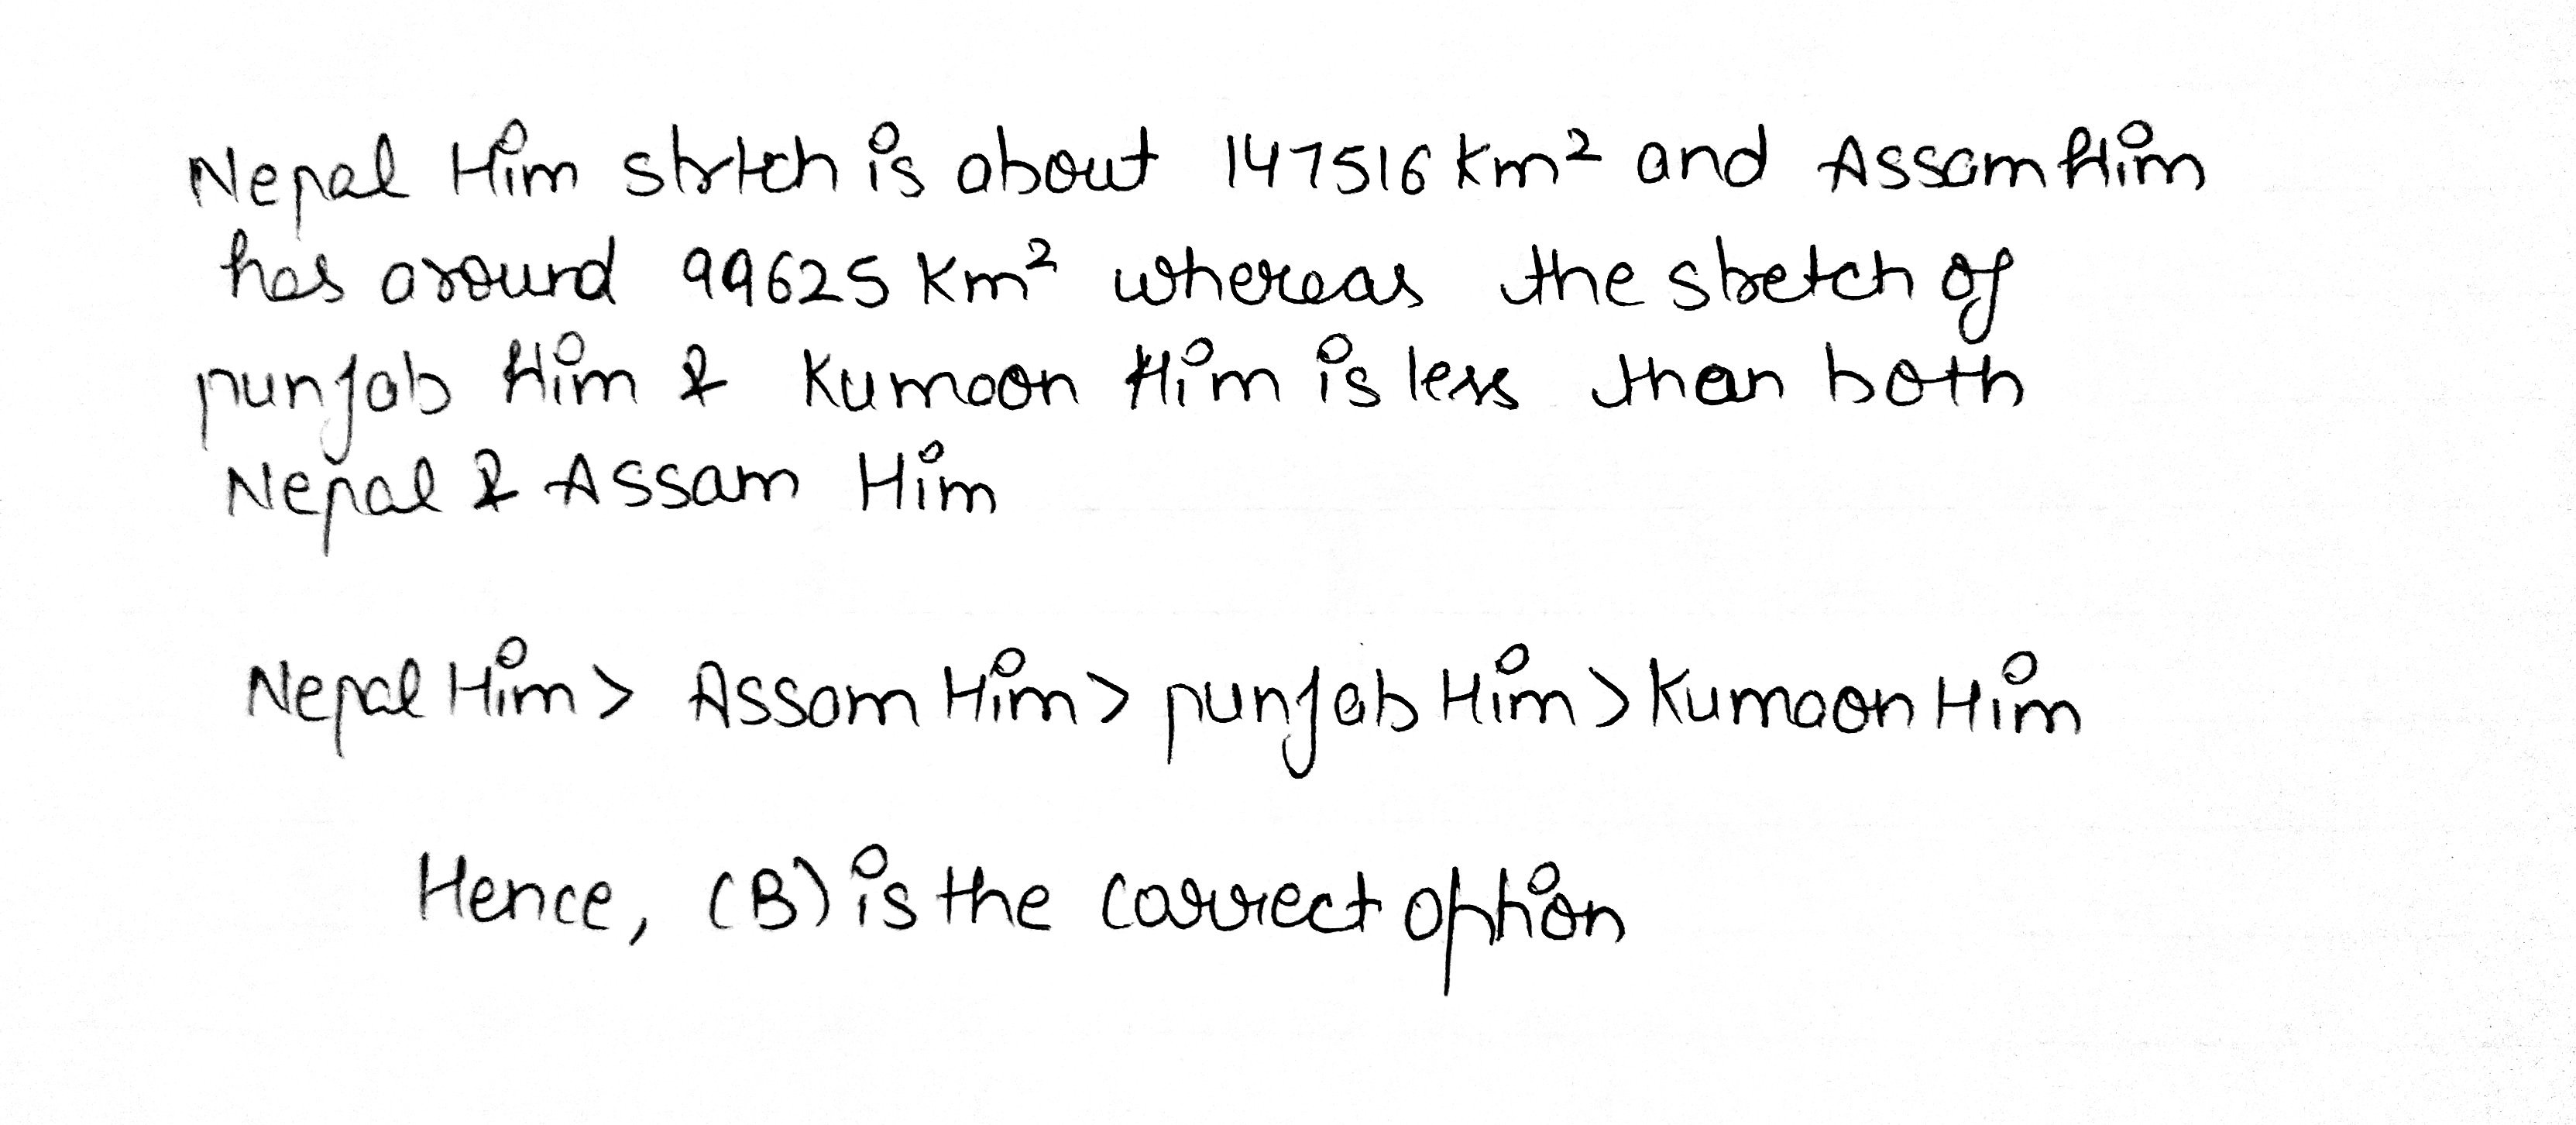 Nepal Him strtch is about 147516 Km² and Assam Him
has around 99625 Km² whereas the stretch of
punjab Him & Kumoon Him is less than both
Nepal & Assam Him
Nepal Him > Assam Him > punjab Him > Kumaon Him
Hence, (B) is the correct option